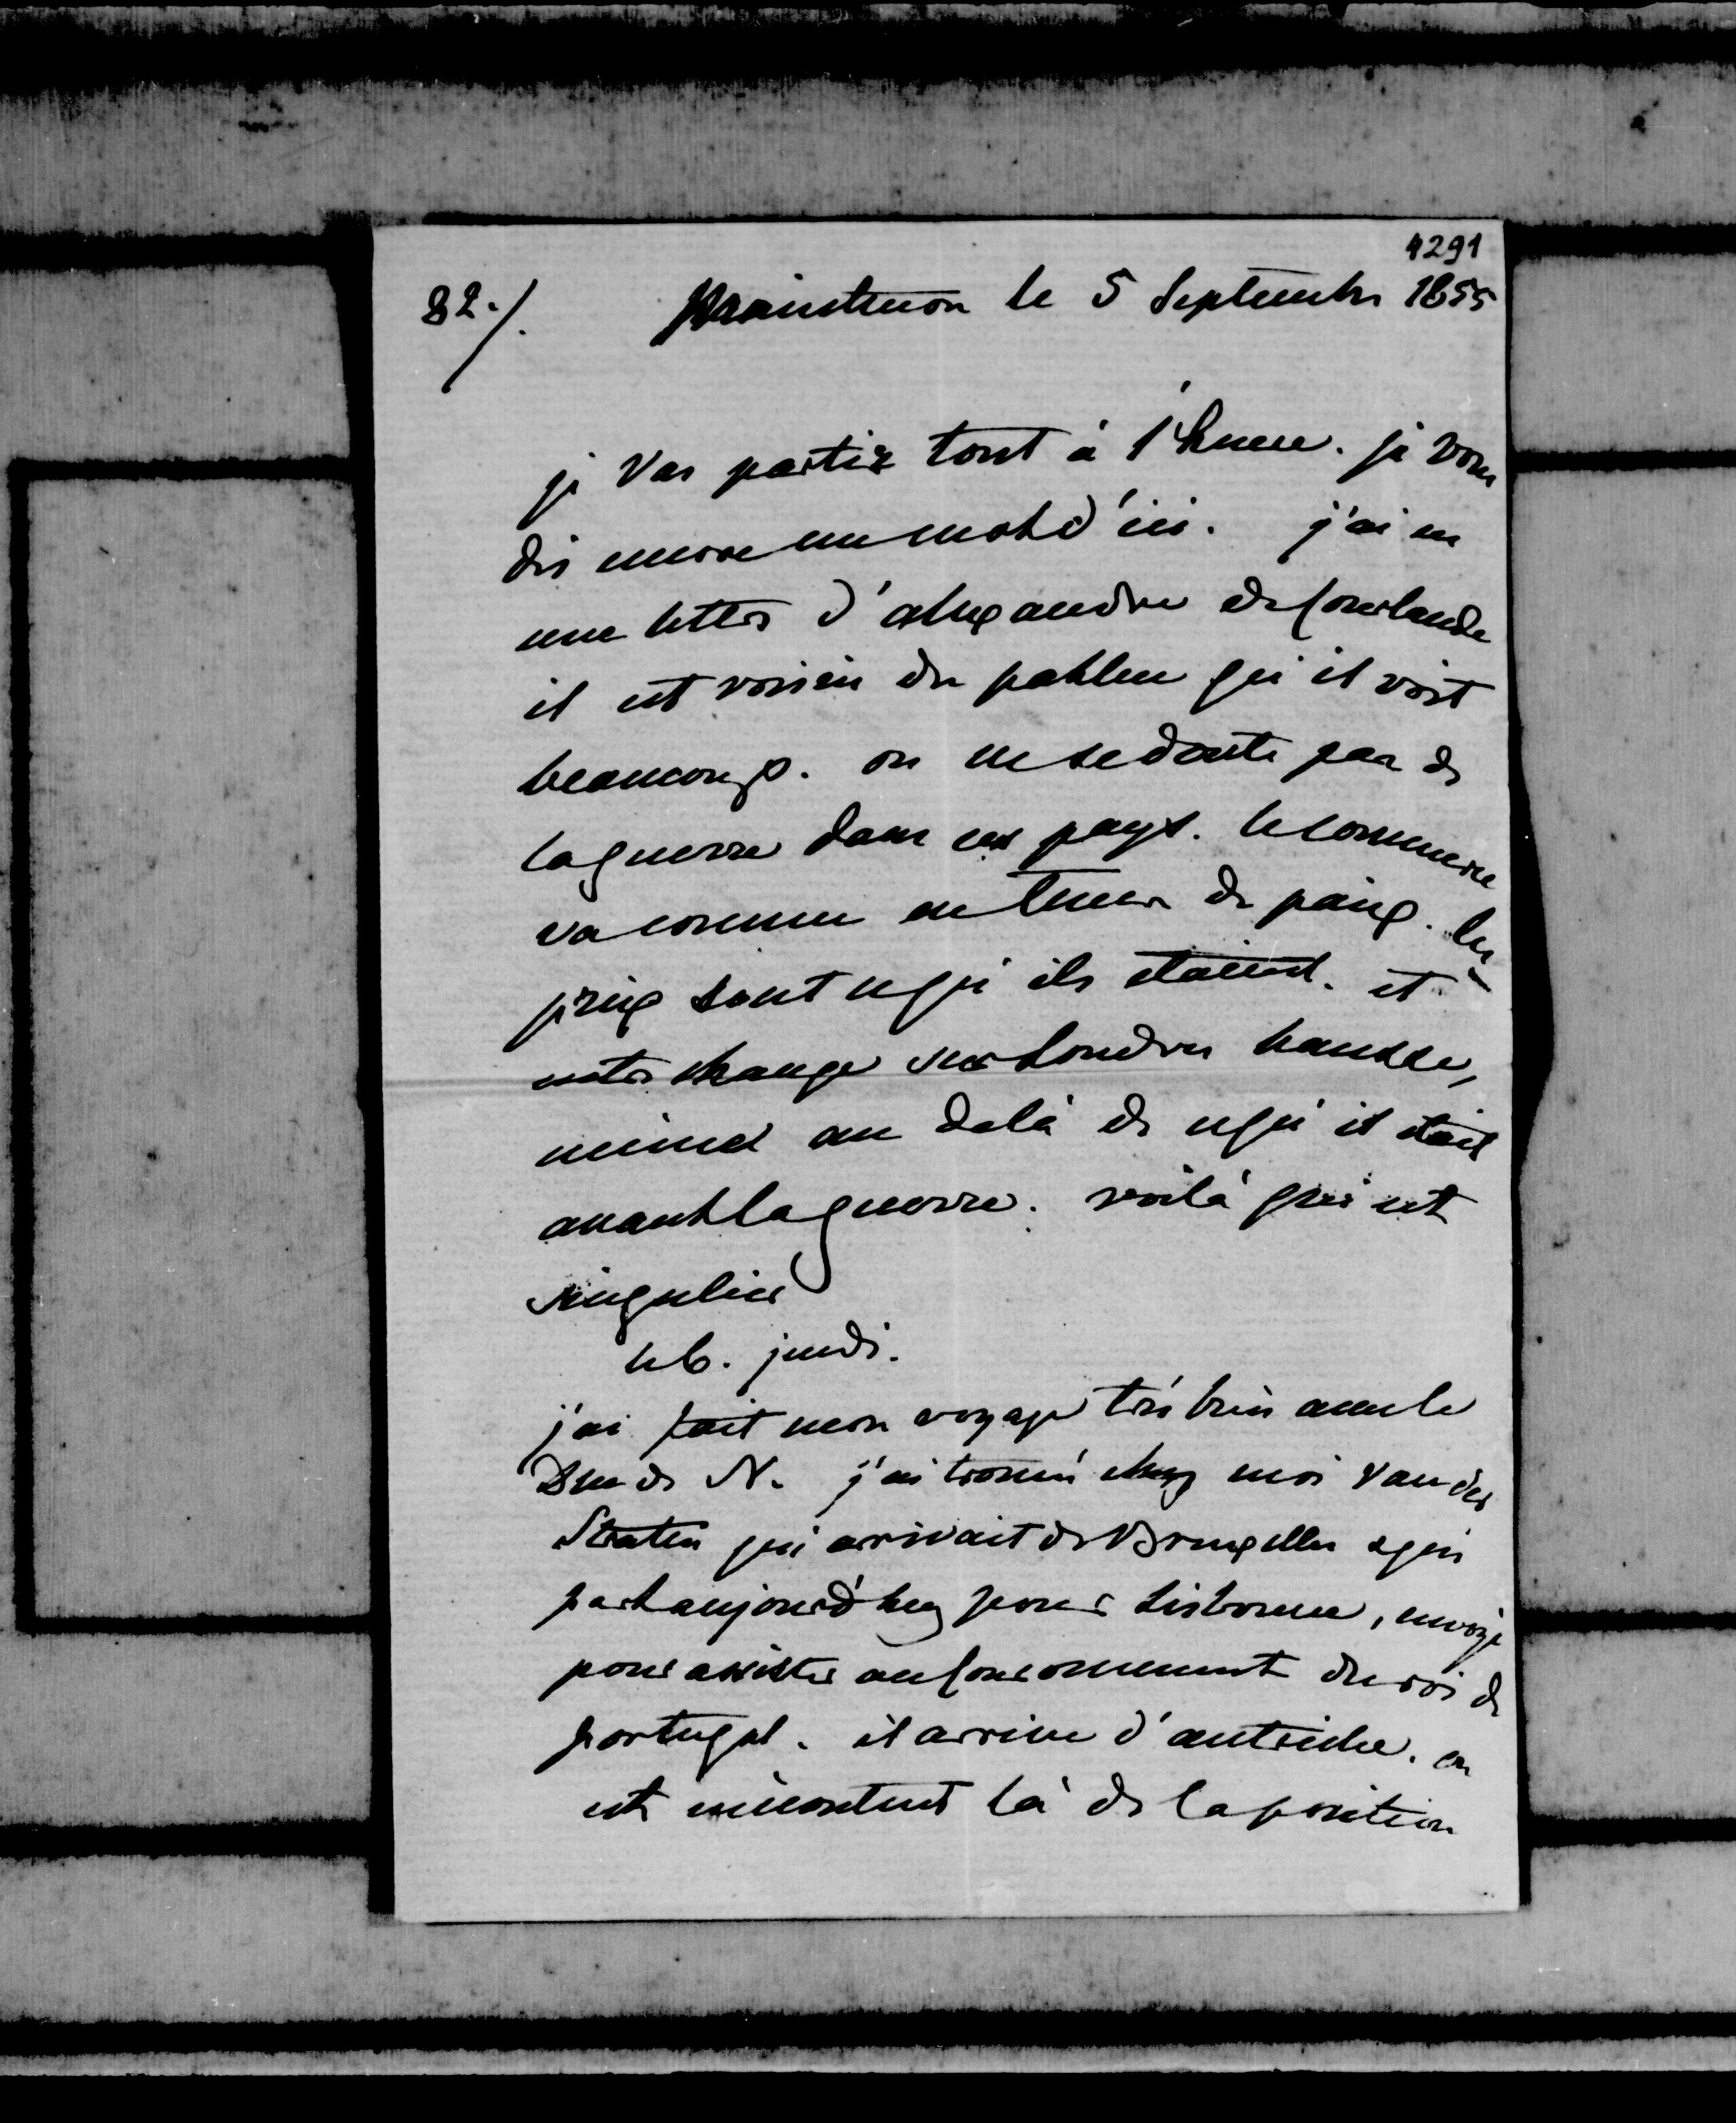 4291
82./. Maintenon le 5 Septembre 1855
je vas partir tout à l'heure. je vous
dis encore un mot d'ici. j'ai eu
une lettre d'alexandre de Courlande
il est voisin de pahlen qu'il voit
beaucoup. on ne se doute pas de
la guerre dans ces pays. le commerce
va comme en tems de paix. les
prix sont ce qu'ils étaient. et
notre change sur Londres hausse,
même au delà de ce qu'il était
avant la guerre. voilà qui est
singulier
le 6. jeudi.
j'ai fait mon voyage très bien avec le
Duc de N. j'ai trouvé chez moi Van der
Straten qui arrivait de Bruxelles & qui
part aujourd'huy pour Lisbonne, envoyé
pour assister au couronnement du roi de
portugal. il arrive d'autriche. on
est mécontent là de la position